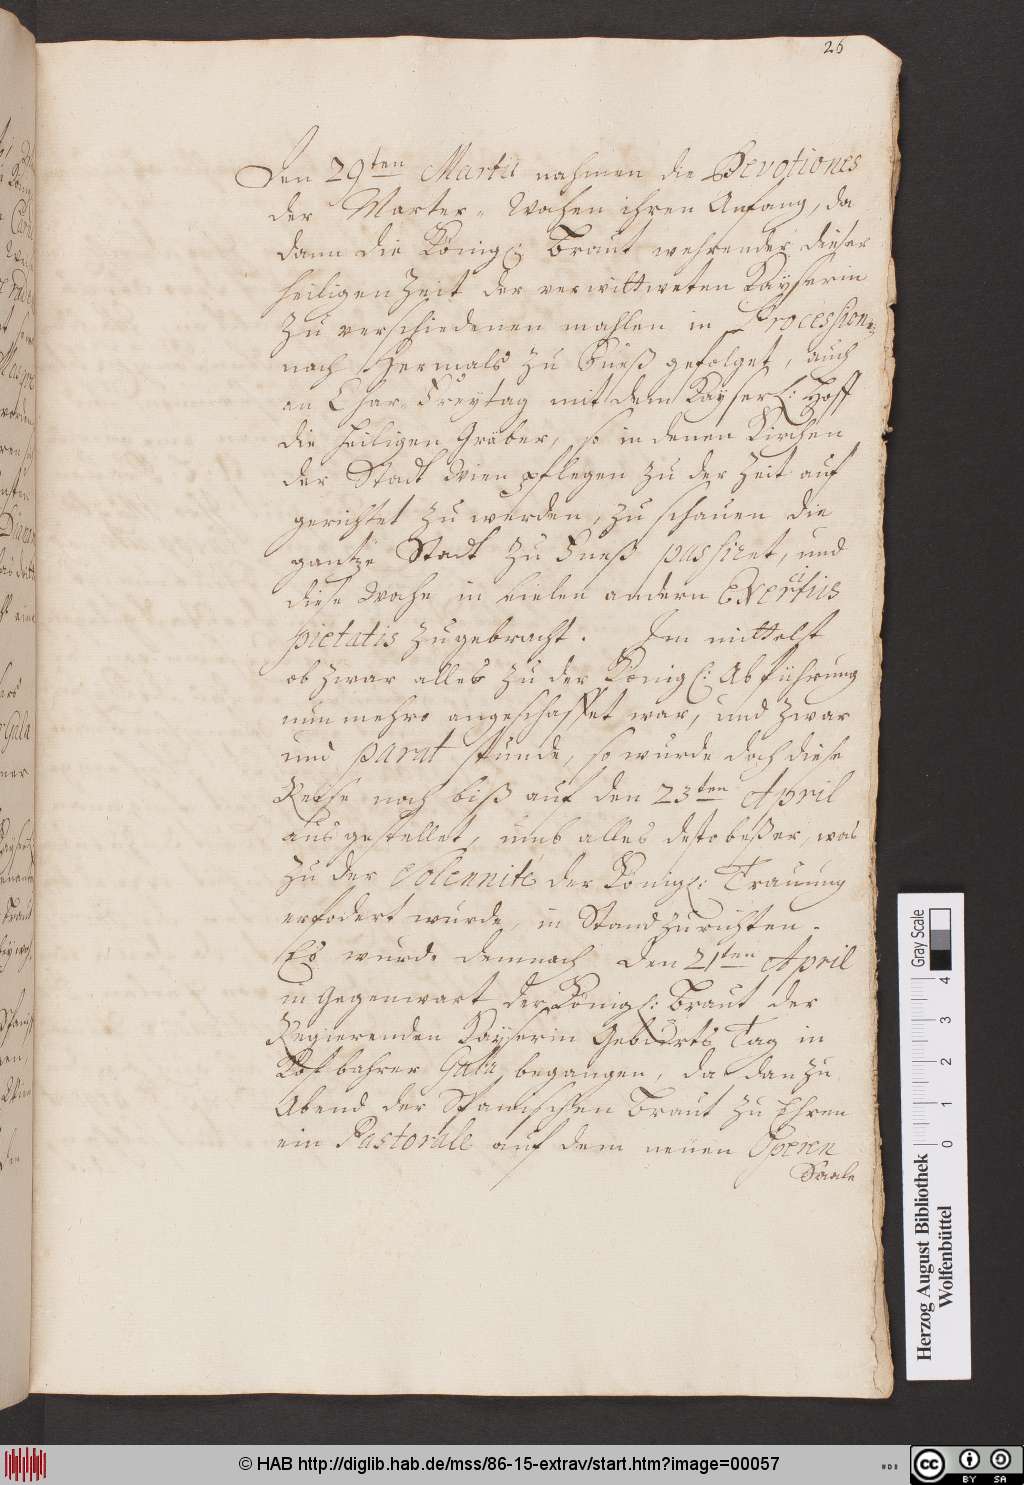 26
Den 29ten Martii nahmen die Devotiones
der Marter-Wochen ihren Anfang, da
dann die Königl: Braut wehrender dieser
heiligen Zeit der verwittweten Kayserin
zu verschiedenen mahlen in Procession
nach Hermals zu Fueß gefolget, auch
an Char-Freytag mit dem Kayserl: Hoff
die heiligen Gräber, so in denen Kirchen
der Stadt Wien pflegen zu der Zeit auf
gerichtet zu werden, zu schauen die
gantze Stadt zu Fueß passiret, und
diese Woche in vielen andern Exercitiis
pietatis zugebracht. Im mittelst
ob zwar alles zu der Königl: Abführung
nunmehro angeschaffet war, und zwar
und parat stunde, so wurde doch diese
Reise noch biß auf den 23ten April
aus gestellet, umb alles desto beßer, was
zu der Solennité der Königl: Trauung
erfodert wurde, in Stand zu richten.
Es wurde demnach den 21ten April
in Gegenwart der Königl: Braut der
Regierenden Kayserin Geburts Tag in
Kostbahrer Gala begangen, da dan zu
Abend der Spanischen Braut zu Ehren
ein Pastorale auf dem neuen Operen
Saale
Gray Scale
0 1 2 3 4
Herzog August Bibliothek
Wolfenbüttel
© HAB http://diglib.hab.de/mss/86-15-extrav/start.htm?image=00057
cc BY SA